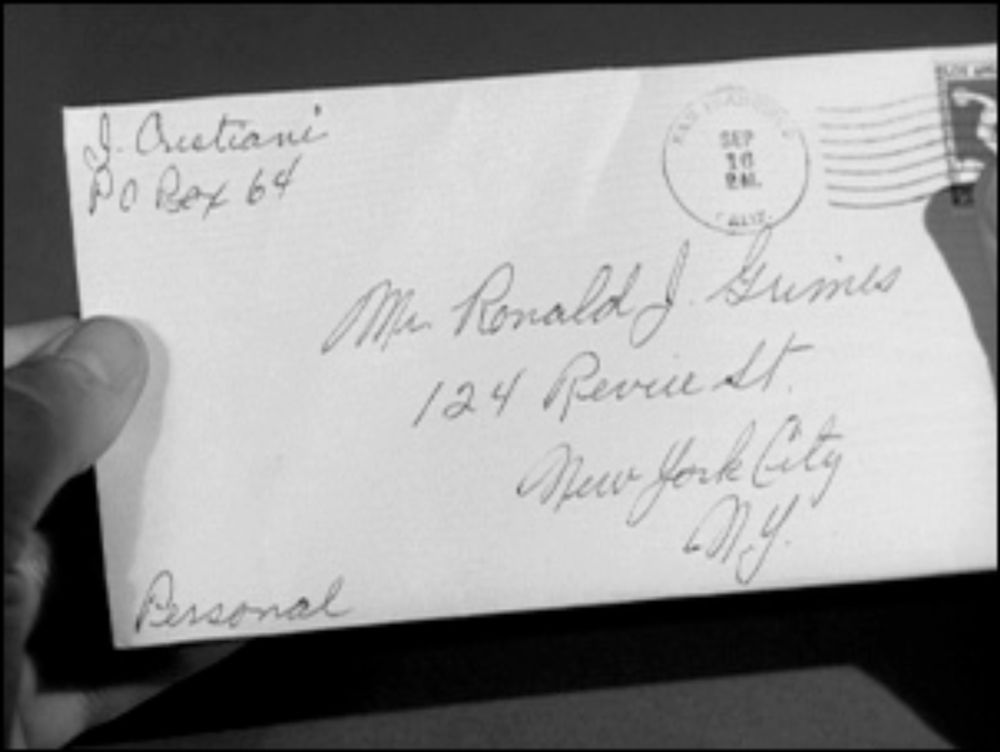 J. Cristiani
PO Box 64
SAN FRANCISCO
SEP
10
CALIF.
Mr. Ronald J. Grimes
124 Revere St.
New York City
N.Y.
Personal